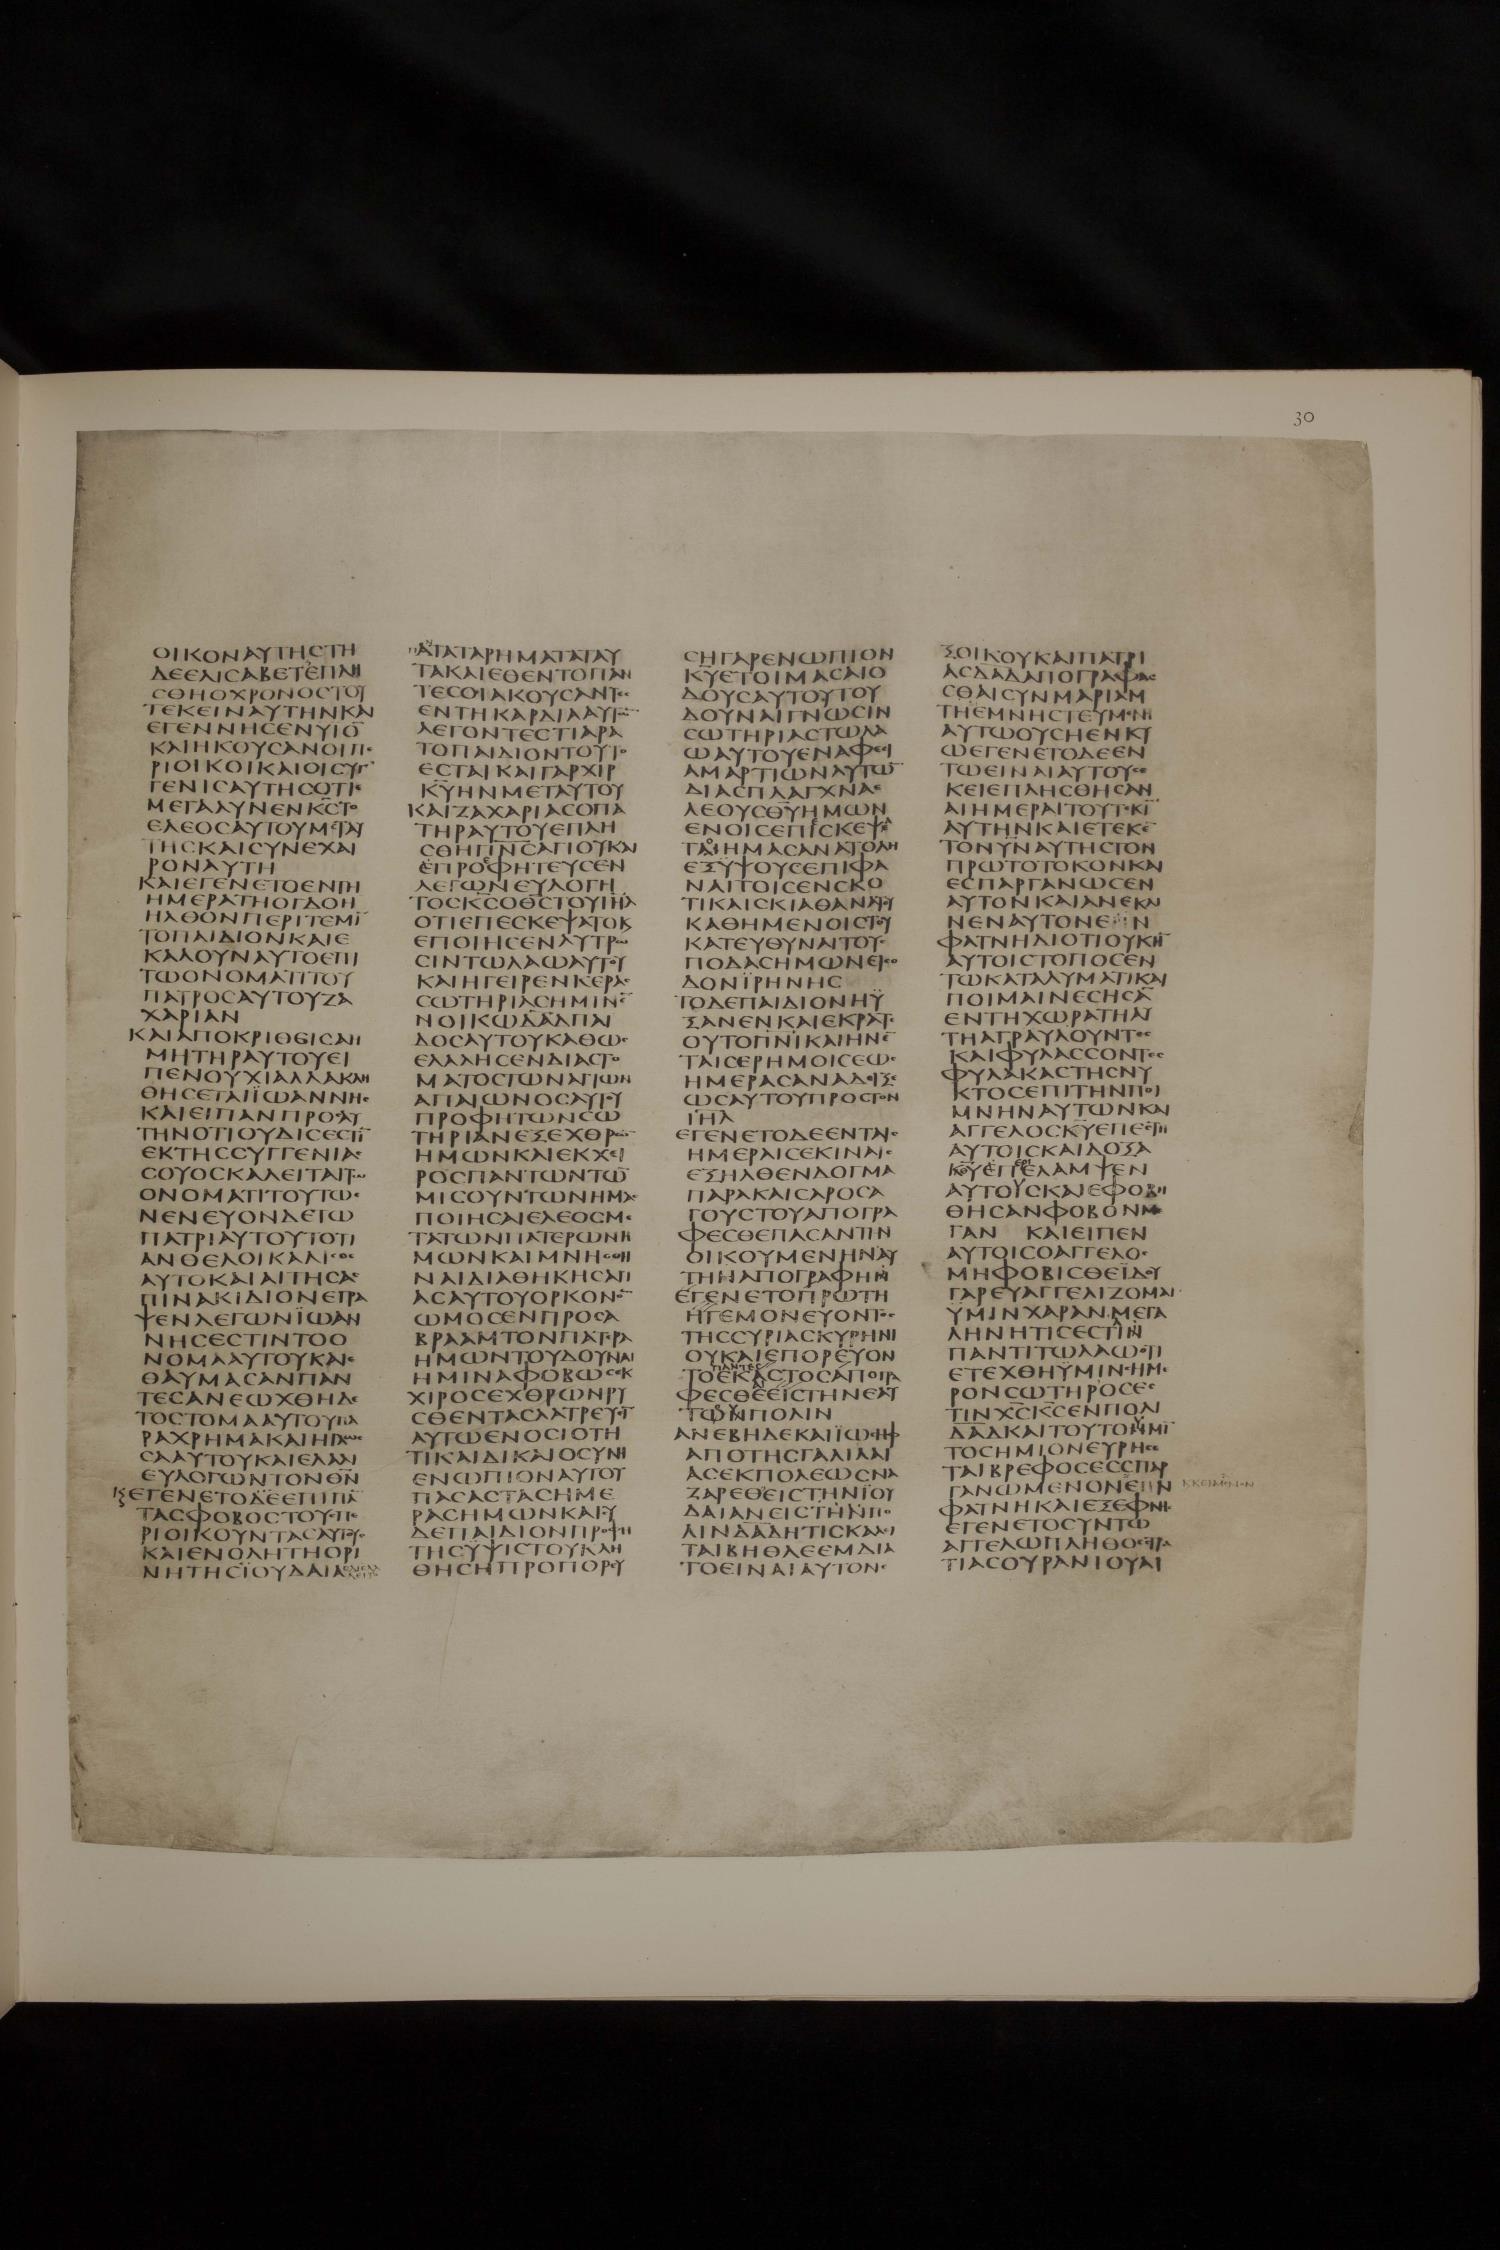 30
ΟΙΚΟΝ ΑΥΤΗΣ ΤΗ
ΔΕ ΕΛΙΣΑΒΕΤ ΕΠΛΗ
ΣΘΗ Ο ΧΡΟΝΟΣ ΤΟΥ
ΤΕΚΕΙΝ ΑΥΤΗΝ ΚΑΙ
ΕΓΕΝΝΗΣΕΝ ΥΙΟ̅
ΚΑΙ ΗΚΟΥΣΑΝ ΟΙ ΠΕ
ΡΙΟΙΚΟΙ ΚΑΙ ΟΙ ΣΥΓ
ΓΕΝΙΣ ΑΥΤΗΣ ΟΤΙ Ε
ΜΕΓΑΛΥΝΕΝ Κ̅Σ̅ ΤΟ
ΕΛΕΟΣ ΑΥΤΟΥ ΜΕΤ ΑΥ
ΤΗΣ ΚΑΙ ΣΥΝΕΧΑΙ
ΡΟΝ ΑΥΤΗ
ΚΑΙ ΕΓΕΝΕΤΟ ΕΝ ΤΗ
ΗΜΕΡΑ ΤΗ ΟΓΔΟΗ
ΗΛΘΟΝ ΠΕΡΙΤΕΜΙ̅
ΤΟ ΠΑΙΔΙΟΝ ΚΑΙ Ε
ΚΑΛΟΥΝ ΑΥΤΟ ΕΠΙ
ΤΩ ΟΝΟΜΑΤΙ ΤΟΥ
ΠΑΤΡΟΣ ΑΥΤΟΥ ΖΑ
ΧΑΡΙΑΝ
ΚΑΙ ΑΠΟΚΡΙΘΕΙΣΑ Η
ΜΗΤΗΡ ΑΥΤΟΥ ΕΙ
ΠΕΝ ΟΥΧΙ ΑΛΛΑ ΚΛΗ
ΘΗΣΕΤΑΙ ΪΩΑΝΝΗΣ
ΚΑΙ ΕΙΠΑΝ ΠΡΟΣ ΑΥ
ΤΗΝ ΟΤΙ ΟΥΔΙΣ ΕΣΤΙ̅
ΕΚ ΤΗΣ ΣΥΓΓΕΝΙΑΣ
ΣΟΥ ΟΣ ΚΑΛΕΙΤΑΙ ΤΩ
ΟΝΟΜΑΤΙ ΤΟΥΤΩ Ε
ΝΕΝΕΥΟΝ ΔΕ ΤΩ
ΠΑΤΡΙ ΑΥΤΟΥ ΤΟ ΤΙ
ΑΝ ΘΕΛΟΙ ΚΑΛΙΣΘΕ
ΑΥΤΟ ΚΑΙ ΑΙΤΗΣΑΣ
ΠΙΝΑΚΙΔΙΟΝ ΕΓΡΑ
ΨΕΝ ΛΕΓΩΝ ΪΩΑΝ
ΝΗΣ ΕΣΤΙΝ ΤΟ Ο
ΝΟΜΑ ΑΥΤΟΥ ΚΑΙ Ε
ΘΑΥΜΑΣΑΝ ΠΑΝ
ΤΕΣ ΑΝΕΩΧΘΗ ΔΕ
ΤΟ ΣΤΟΜΑ ΑΥΤΟΥ ΠΑ
ΡΑΧΡΗΜΑ ΚΑΙ Η ΓΛΩΣ
ΣΑ ΑΥΤΟΥ ΚΑΙ ΕΛΑΛΙ
ΕΥΛΟΓΩΝ ΤΟΝ Θ̅Ν̅
ΕΓΕΝΕΤΟ ΔΕ ΕΠΙ ΠΑ̅
ΤΑΣ ΦΟΒΟΣ ΤΟΥΣ ΠΕ
ΡΙΟΙΚΟΥΝΤΑΣ ΑΥΤΟΥΣ
ΚΑΙ ΕΝ ΟΛΗ ΤΗ ΟΡΙ
ΝΗ ΤΗΣ ΪΟΥΔΑΙΑΣ
ΤΑ ΤΑ ΡΗΜΑΤΑ ΤΑΥ
ΤΑ ΚΑΙ ΕΘΕΝΤΟ ΠΑΝ
ΤΕΣ ΟΙ ΑΚΟΥΣΑΝΤΕΣ
ΕΝ ΤΗ ΚΑΡΔΙΑ ΑΥΤΩ̅
ΛΕΓΟΝΤΕΣ ΤΙ ΑΡΑ
ΤΟ ΠΑΙΔΙΟΝ ΤΟΥΤΟ
ΕΣΤΑΙ ΚΑΙ ΓΑΡ ΧΙΡ
Κ̅Υ̅ ΗΝ ΜΕΤ ΑΥΤΟΥ
ΚΑΙ ΖΑΧΑΡΙΑΣ Ο ΠΑ
ΤΗΡ ΑΥΤΟΥ ΕΠΛΗ
ΣΘΗ Π̅Ν̅Σ̅ ΑΓΙΟΥ ΚΑΙ
ΕΠΡΟΦΗΤΕΥΣΕΝ
ΛΕΓΩΝ ΕΥΛΟΓΗ
ΤΟΣ Κ̅Σ̅ Ο Θ̅Σ̅ ΤΟΥ Ι̅Η̅Λ̅
ΟΤΙ ΕΠΕΣΚΕΨΑΤΟ Κ
ΕΠΟΙΗΣΕΝ ΛΥΤΡΩ
ΣΙΝ ΤΩ ΛΑΩ ΑΥΤΟΥ
ΚΑΙ ΗΓΕΙΡΕΝ ΚΕΡΑΣ
ΣΩΤΗΡΙΑΣ ΗΜΙΝ Ε̅
Ν ΟΙΚΩ Δ̅Α̅Δ̅ ΠΑΙ
ΔΟΣ ΑΥΤΟΥ ΚΑΘΩΣ
ΕΛΑΛΗΣΕΝ ΔΙΑ ΣΤΟ
ΜΑΤΟΣ ΤΩΝ ΑΓΙΩΝ
ΑΠ ΑΙΩΝΟΣ ΑΥΤΟΥ
ΠΡΟΦΗΤΩΝ ΣΩ
ΤΗΡΙΑΝ ΕΞ ΕΧΘΡΩ̅
ΗΜΩΝ ΚΑΙ ΕΚ ΧΕΙ
ΡΟΣ ΠΑΝΤΩΝ ΤΩ̅
ΜΙΣΟΥΝΤΩΝ ΗΜΑΣ
ΠΟΙΗΣΑΙ ΕΛΕΟΣ ΜΕ
ΤΑ ΤΩΝ ΠΑΤΕΡΩΝ Η
ΜΩΝ ΚΑΙ ΜΝΗΣΘΗ
ΝΑΙ ΔΙΑΘΗΚΗΣ ΑΓΙ
ΑΣ ΑΥΤΟΥ ΟΡΚΟΝ Ο̅
ΩΜΟΣΕΝ ΠΡΟΣ Α
ΒΡΑΑΜ ΤΟΝ ΠΑΤΕΡΑ
ΗΜΩΝ ΤΟΥ ΔΟΥΝΑΙ
ΗΜΙΝ ΑΦΟΒΩΣ ΕΚ
ΧΙΡΟΣ ΕΧΘΡΩΝ ΡΥ
ΣΘΕΝΤΑΣ ΛΑΤΡΕΥΕΙ̅
ΑΥΤΩ ΕΝ ΟΣΙΟΤΗ
ΤΙ ΚΑΙ ΔΙΚΑΙΟΣΥΝΗ
ΕΝΩΠΙΟΝ ΑΥΤΟΥ
ΠΑΣΑΣ ΤΑΣ ΗΜΕ
ΡΑΣ ΗΜΩΝ ΚΑΙ ΣΥ
ΔΕ ΠΑΙΔΙΟΝ ΠΡΟΦΗ
ΤΗΣ ΥΨΙΣΤΟΥ ΚΛΗ
ΘΗΣΗ ΠΡΟΠΟΡΕΥ
ΣΗ ΓΑΡ ΕΝΩΠΙΟΝ
Κ̅Υ̅ ΕΤΟΙΜΑΣΑΙ Ο
ΔΟΥΣ ΑΥΤΟΥ ΤΟΥ
ΔΟΥΝΑΙ ΓΝΩΣΙΝ
ΣΩΤΗΡΙΑΣ ΤΩ ΛΑ
Ω ΑΥΤΟΥ ΕΝ ΑΦΕΣΙ
ΑΜΑΡΤΙΩΝ ΑΥΤΩ̅
ΔΙΑ ΣΠΛΑΓΧΝΑ Ε
ΛΕΟΥΣ Θ̅Υ̅ ΗΜΩΝ
ΕΝ ΟΙΣ ΕΠΙΣΚΕΨΕ
ΤΑΙ ΗΜΑΣ ΑΝΑΤΟΛΗ
ΕΞ ΫΨΟΥΣ ΕΠΙΦΑ
ΝΑΙ ΤΟΙΣ ΕΝ ΣΚΟ
ΤΙ ΚΑΙ ΣΚΙΑ ΘΑΝΑΤΟΥ
ΚΑΘΗΜΕΝΟΙΣ ΤΟΥ
ΚΑΤΕΥΘΥΝΑΙ ΤΟΥΣ
ΠΟΔΑΣ ΗΜΩΝ ΕΙΣ Ο
ΔΟΝ ΪΡΗΝΗΣ
ΤΟ ΔΕ ΠΑΙΔΙΟΝ ΗΥ
ΞΑΝΕΝ ΚΑΙ ΕΚΡΑΤΑΙ
ΟΥΤΟ Π̅Ν̅Ι̅ ΚΑΙ ΗΝ Ε̅
ΤΑΙΣ ΕΡΗΜΟΙΣ ΕΩΣ
ΗΜΕΡΑΣ ΑΝΑΔΙΞΕ
ΩΣ ΑΥΤΟΥ ΠΡΟΣ ΤΟΝ
Ι̅Η̅Λ̅
ΕΓΕΝΕΤΟ ΔΕ ΕΝ ΤΑΙΣ
ΗΜΕΡΑΙΣ ΕΚΙΝΑΙΣ
ΕΞΗΛΘΕΝ ΔΟΓΜΑ
ΠΑΡΑ ΚΑΙΣΑΡΟΣ Α
ΓΟΥΣΤΟΥ ΑΠΟΓΡΑ
ΦΕΣΘΕ ΠΑΣΑΝ ΤΗΝ
ΟΙΚΟΥΜΕΝΗΝ ΑΥ
ΤΗΝ ΑΠΟΓΡΑΦΗΝ
ΕΓΕΝΕΤΟ ΠΡΩΤΗ
ΗΓΕΜΟΝΕΥΟΝΤΟΣ
ΤΗΣ ΣΥΡΙΑΣ ΚΥΡΗΝΙ
ΟΥ ΚΑΙ ΕΠΟΡΕΥΟΝ
ΠΑΝΤΕΣ
ΤΟ ΕΚΑΣΤΟΣ ΑΠΟΓΡΑ
ΦΕΣΘΕ ΕΙΣ ΤΗΝ ΕΑΥ
ΤΩΝ ΠΟΛΙΝ
ΑΝΕΒΗ ΔΕ ΚΑΙ ΪΩΣΗΦ
ΑΠΟ ΤΗΣ ΓΑΛΙΛΑΙ
ΑΣ ΕΚ ΠΟΛΕΩΣ ΝΑ
ΖΑΡΕΘ ΕΙΣ ΤΗΝ ΪΟΥ
ΔΑΙΑΝ ΕΙΣ ΤΗΝ ΠΟ
ΛΙΝ Δ̅Α̅Δ̅ ΗΤΙΣ ΚΑΛΕΙ
ΤΑΙ ΒΗΘΛΕΕΜ ΔΙΑ
ΤΟ ΕΙΝΑΙ ΑΥΤΟΝ Ε
Ξ ΟΙΚΟΥ ΚΑΙ ΠΑΤΡΙ
ΑΣ Δ̅Α̅Δ̅ ΑΠΟΓΡΑΦΕ
ΣΘΑΙ ΣΥΝ ΜΑΡΙΑΜ
ΤΗ ΕΜΝΗΣΤΕΥΜΕΝΗ
ΑΥΤΩ ΟΥΣΗ ΕΝΚΥ
Ω ΕΓΕΝΕΤΟ ΔΕ ΕΝ
ΤΩ ΕΙΝΑΙ ΑΥΤΟΥΣ Ε
ΚΕΙ ΕΠΛΗΣΘΗΣΑΝ
ΑΙ ΗΜΕΡΑΙ ΤΟΥ ΤΕΚΙ̅
ΑΥΤΗΝ ΚΑΙ ΕΤΕΚΕ̅
ΤΟΝ ΥΝ ΑΥΤΗΣ ΤΟΝ
ΠΡΩΤΟΤΟΚΟΝ ΚΑΙ
ΕΣΠΑΡΓΑΝΩΣΕΝ
ΑΥΤΟΝ ΚΑΙ ΑΝΕΚΛΙ
ΝΕΝ ΑΥΤΟΝ ΕΝ
ΦΑΤΝΗ ΔΙΟΤΙ ΟΥΚ Η̅
ΑΥΤΟΙΣ ΤΟΠΟΣ ΕΝ
ΤΩ ΚΑΤΑΛΥΜΑΤΙ ΚΑΙ
ΠΟΙΜΑΙΝΕΣ ΗΣΑ̅
ΕΝ ΤΗ ΧΩΡΑ ΤΗ ΑΥ
ΤΗ ΑΓΡΑΥΛΟΥΝΤΕΣ
ΚΑΙ ΦΥΛΑΣΣΟΝΤΕΣ
ΦΥΛΑΚΑΣ ΤΗΣ ΝΥ
ΚΤΟΣ ΕΠΙ ΤΗΝ ΠΟΙ
ΜΝΗΝ ΑΥΤΩΝ ΚΑΙ
ΑΓΓΕΛΟΣ Κ̅Υ̅ ΕΠΕΣΤΗ
ΑΥΤΟΙΣ ΚΑΙ ΔΟΞΑ
Κ̅Υ̅ ΕΠΕΛΑΜΨΕΝ
ΑΥΤΟΥΣ ΚΑΙ ΕΦΟΒΗ
ΘΗΣΑΝ ΦΟΒΟΝ ΜΕ
ΓΑΝ ΚΑΙ ΕΙΠΕΝ
ΑΥΤΟΙΣ Ο ΑΓΓΕΛΟΣ
ΜΗ ΦΟΒΙΣΘΕ ΪΔΟΥ
ΓΑΡ ΕΥΑΓΓΕΛΙΖΟΜΑΙ
ΫΜΙΝ ΧΑΡΑΝ ΜΕΓΑ
ΛΗΝ ΗΤΙΣ ΕΣΤΙΝ
ΠΑΝΤΙ ΤΩ ΛΑΩ ΟΤΙ
ΕΤΕΧΘΗ ΫΜΙΝ ΣΗΜΕ
ΡΟΝ ΣΩΤΗΡ ΟΣ ΕΣ
ΤΙΝ Χ̅Σ̅ Κ̅Σ̅ ΕΝ ΠΟΛΙ
Δ̅Α̅Δ̅ ΚΑΙ ΤΟΥΤΟ ΥΜΙ̅
ΤΟ ΣΗΜΙΟΝ ΕΥΡΗΣΕ
ΤΑΙ ΒΡΕΦΟΣ ΕΣΠΑΡ
ΓΑΝΩΜΕΝΟΝ ΕΝ
ΦΑΤΝΗ ΚΑΙ ΕΞΕΦΝΗΣ
ΕΓΕΝΕΤΟ ΣΥΝ ΤΩ
ΑΓΓΕΛΩ ΠΛΗΘΟΣ ΣΤΡΑ
ΤΙΑΣ ΟΥΡΑΝΙΟΥ ΑΙ